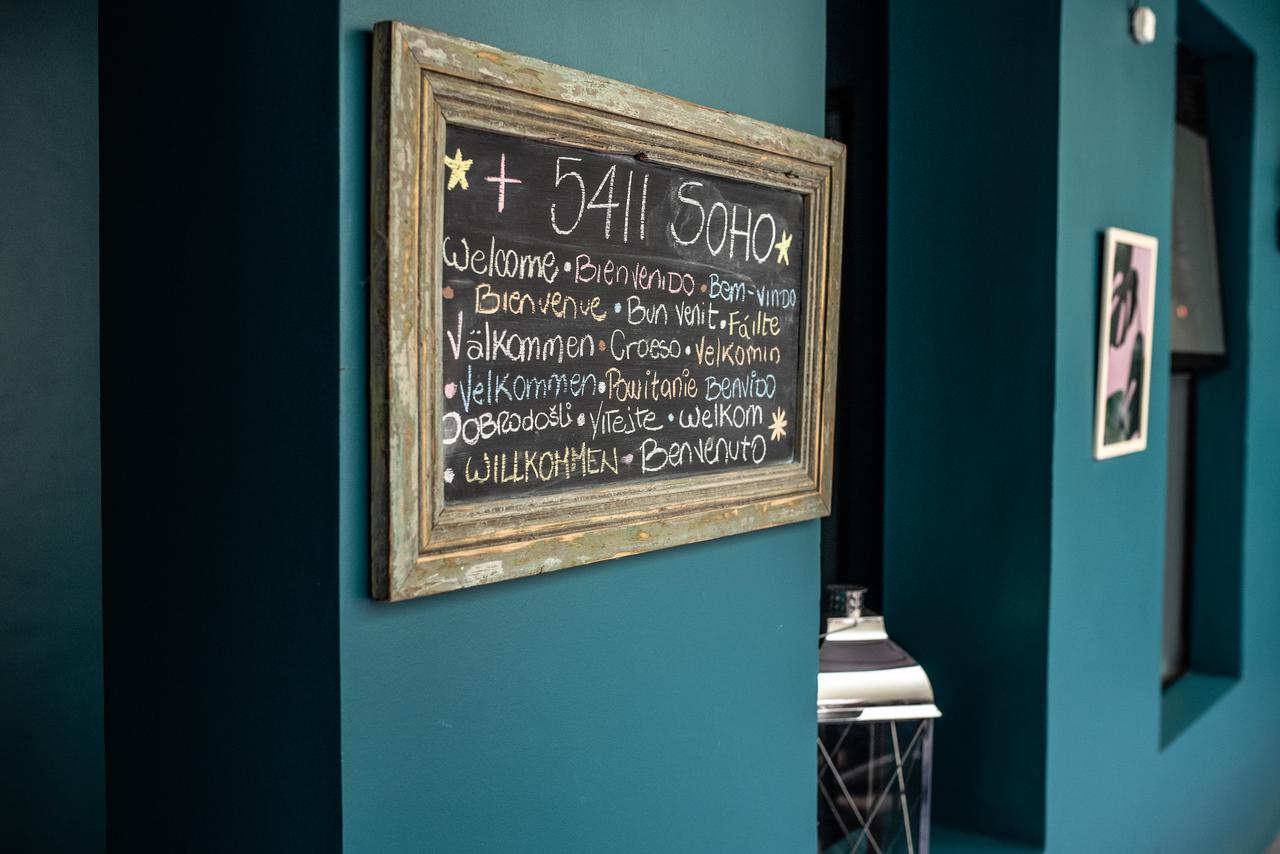 + 5411 SOHO
Welcome • BIENVENIDO • Bem-vindo
• Bienvenue • Bun venit • Fáilte
Välkommen • Croeso • Velkomin
• Velkommen • Powitanie BENVIDO
DOBRODOŠLi • VITEJTE • Welkom
• WILLKOMMEN • Benvenuto